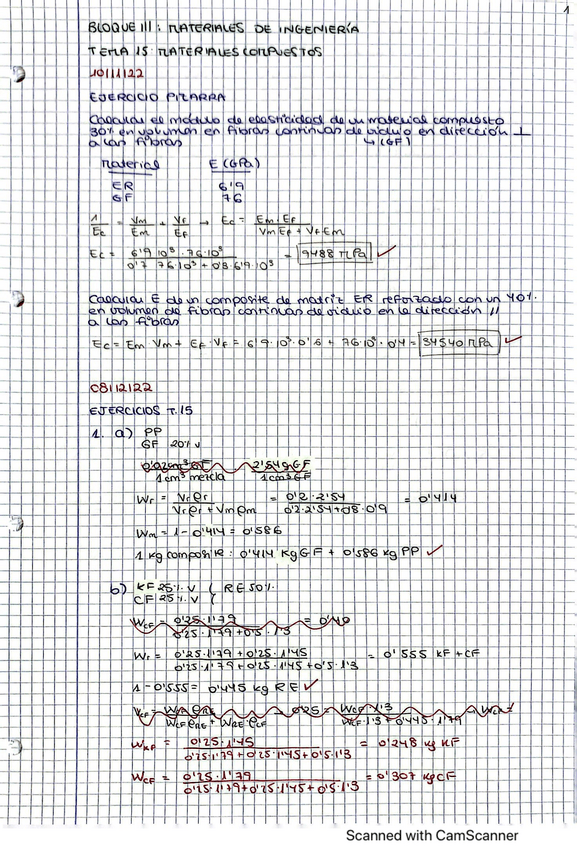 1
BLOQUE III: MATERIALES DE INGENIERÍA
TEMA 15: MATERIALES COMPUESTOS
10/11/22
EJERCICIO PIZARRA
Calcular el módulo de elasticidad de un material compuesto
30% en volumen en fibras continuas de vidrio en dirección ⊥
a las fibras ↳ (GF)
Material E (GPa)
ER 6'9
GF 76
1/Ec = Vm/Em + Vf/Ef → Ec = Em · Ef / (Vm Ef + Vf Em)
Ec = 6'9·10³ · 76·10³ / (0'7 · 76·10³ + 0'3 · 6'9·10³) = 9488 MPa ✓
Calcular E de un composite de matriz ER reforzado con un 40%
en volumen de fibras continuas de vidrio en la dirección //
a las fibras
Ec = Em · Vm + Ef · Vf = 6'9·10³ · 0'6 + 76·10³ · 0'4 = 34540 MPa ✓
08/12/22
EJERCICIOS T.15
1. a) PP
GF 20% V
0'02cm³ GF / 1 cm³ mezcla · 2'54 g GF / 1 cm³ GF
Wf = Vf ρf / (Vf ρf + Vm ρm) = 0'2 · 2'54 / (0'2 · 2'54 + 0'8 · 0'9) = 0'414
Wm = 1 - 0'414 = 0'586
1 kg composite: 0'414 kg GF + 0'586 kg PP ✓
b) KF 25% V
CF 25% V
RE 50%
WCF = 0'25 · 1'79 / (0'25 · 1'79 + 0'5 · 1'3) = 0'40
Wf = (0'25 · 1'79 + 0'25 · 1'45) / (0'25 · 1'79 + 0'25 · 1'45 + 0'5 · 1'3) = 0'555 KF + CF
1 - 0'555 = 0'445 kg RE ✓
VCF = WCF ρRE / (WCF ρRE + WRE ρCF) → 0'25 = WCF · 1'3 / (WCF · 1'3 + 0'445 · 1'79)
WKF = 0'25 · 1'45 / (0'25 · 1'79 + 0'25 · 1'45 + 0'5 · 1'3) = 0'248 kg KF
WCF = 0'25 · 1'79 / (0'25 · 1'79 + 0'25 · 1'45 + 0'5 · 1'3) = 0'307 kg CF
Scanned with CamScanner